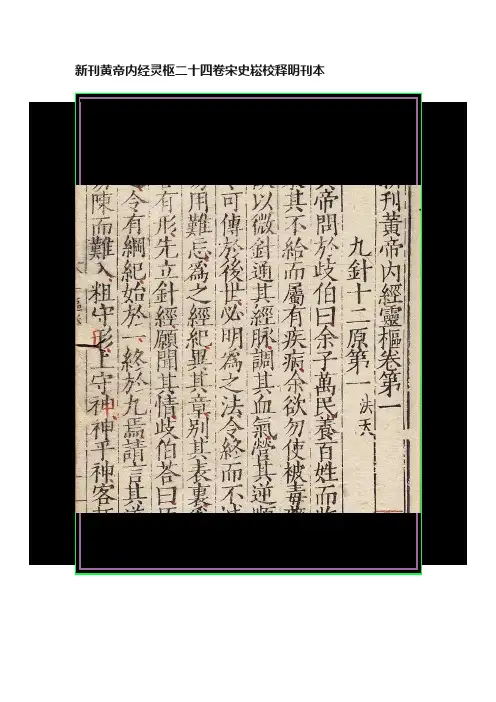 新刊黄帝内经灵枢二十四卷宋史崧校释明刊本
刊黃帝內經靈樞卷第一
九針十二原第一 法天
帝問於歧伯曰余子萬民養百姓而收
其不給而屬有疾病余欲勿使被毒藥
以微針通其經脉調其血氣營其逆順
可傳於後世必明為之法令終而不
用難忘為之經紀異其章別其表裏
有形先立針經願聞其情歧伯荅曰臣
令有綱紀始於一終於九焉請言其
易陳而難入粗守形上守神神乎神客